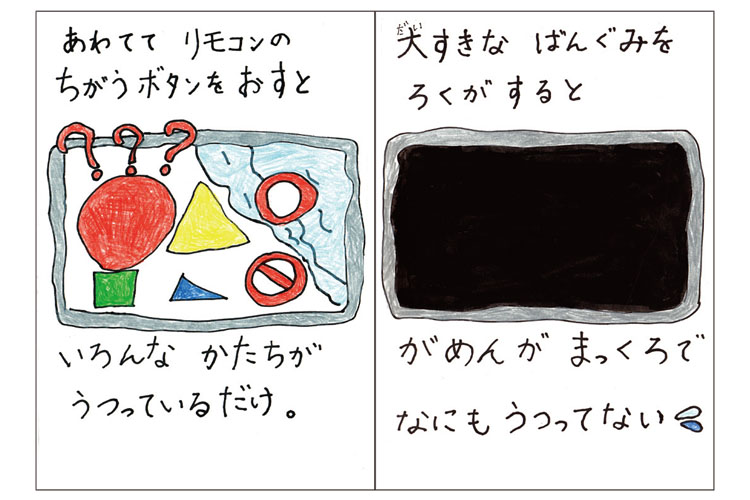 あわてて リモコンの
ちがうボタンをおすと
???
いろんな かたちが
うつっているだけ。
大すきな ばんぐみを
だい
ろくがすると
がめんが まっくろで
なにもうつってない